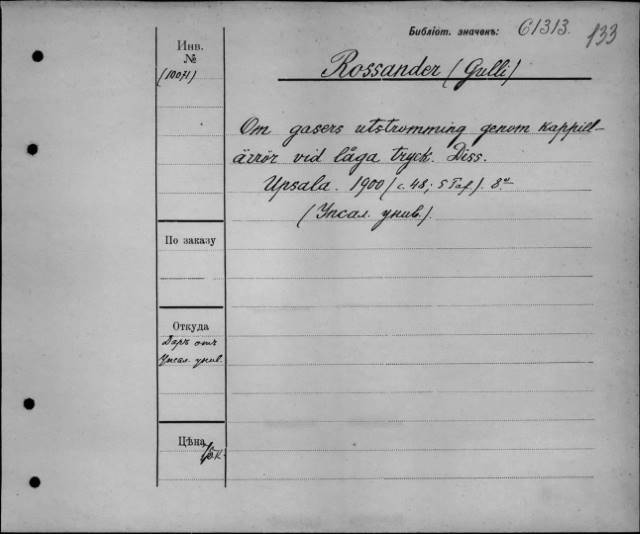 Библіот. значекъ: С1313. 133
Инв.
№
(10071)
Rossander (Gulli)
Om gasers utströmming genom kappill-
ärrör vid låga tryck. Diss.
Upsala. 1900 (с. 48; 5 Taf.). 8º
(Упсал. унив.).
По заказу
Откуда
Даръ отъ
Упсал. унив.
Цѣна